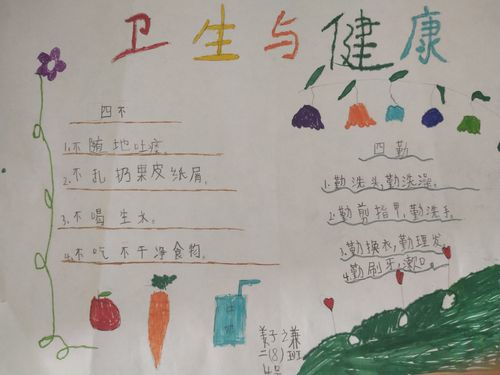 卫生与健康
四不
1.不随地吐痰。
2.不扎扔果皮纸屑。
3.不喝生水。
4.不吃不干净食物。
四勤
1.勤洗头,勤洗澡。
2.勤剪指甲,勤洗手。
3.勤换衣,勤理发
4.勤刷牙,漱口。
姜子谦
二(8)班
4号